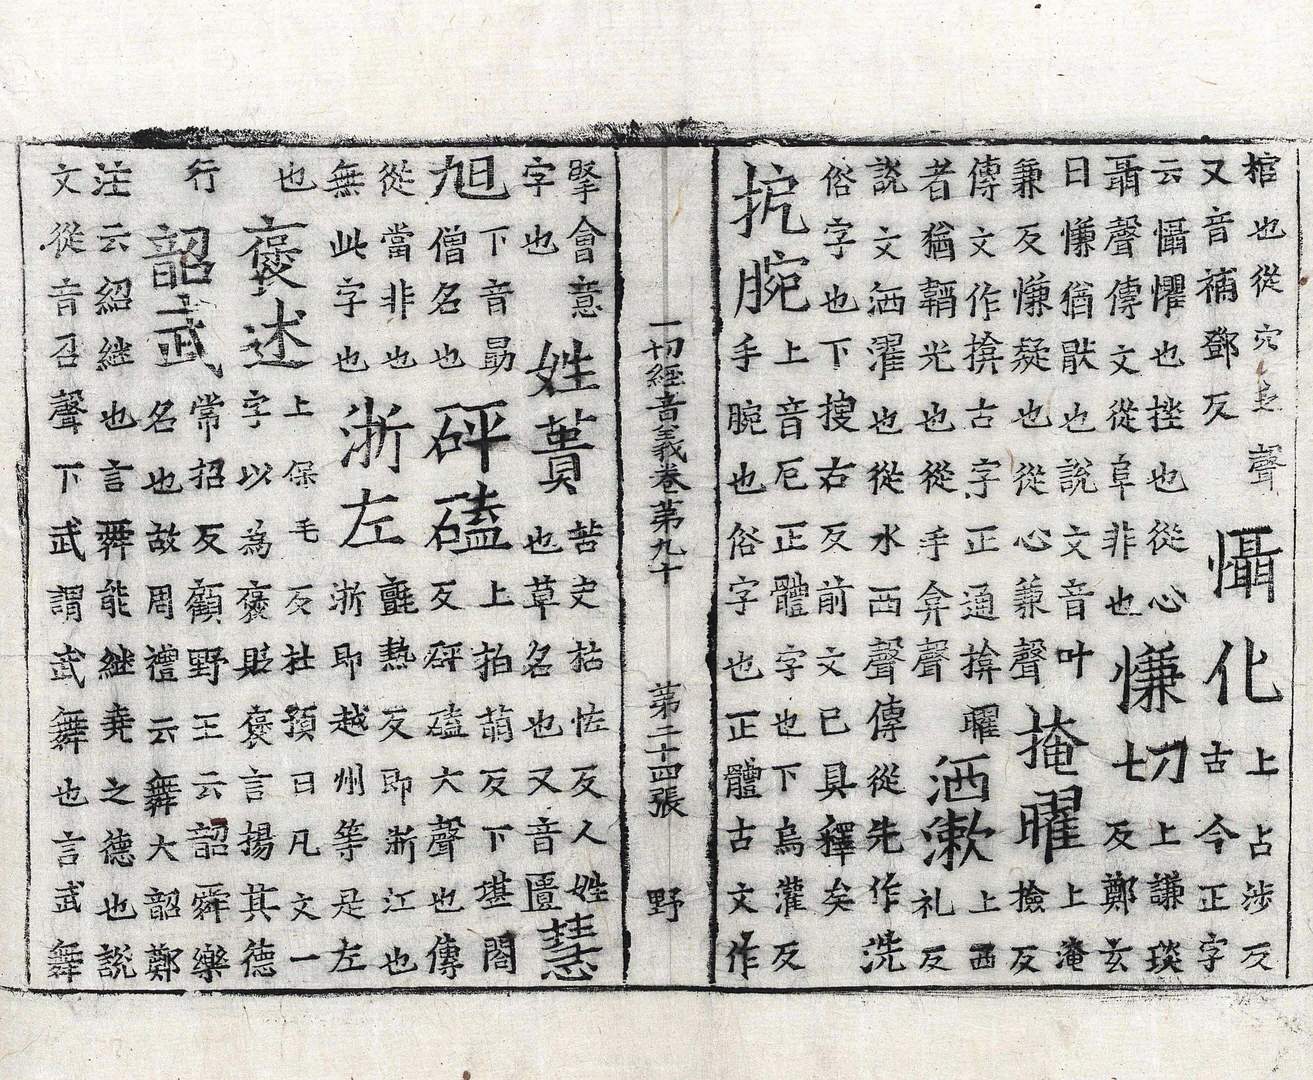 棺也從穴乏聲
又音補鄧反
懾化
上占涉反
古今正字
云懾懼也挫也從心
聶聲傳文從阜非也
慊切
上謙琰
反鄭玄
曰慊猶厭也說文音叶
兼反慊疑也從心兼聲
掩曜
上淹
撿反
傳文作揜古字正通揜曜
者猶韜光也從手弇聲
洒漱
上西
礼反
說文洒濯也從水西聲傳從先作洗
俗字也下搜右反前文已具釋矣
㧖腕
上音厄正體字也下烏灌反
手腕也俗字也正體古文作
一切經音義卷第九十 第二十四張 野
掔會意
字也
姓蕢
苦史括恠反人姓
也草名也又音匱
慧
旭
下音勗
僧名也
砰磕
上拍萌反下堪閤
反砰磕大聲也傳
從當非也
無此字也
浙左
氈熱反即浙江也
浙即越州等是左
也
褒述
上保毛反杜預曰凡文一
字以為褒貶褒言揚其德
行
韶武
常招反顧野王云韶舜樂
名也故周禮云舞大韶鄭
注云紹継也言舜能継堯之德也說
文從音召聲下武謂武舞也言武舞